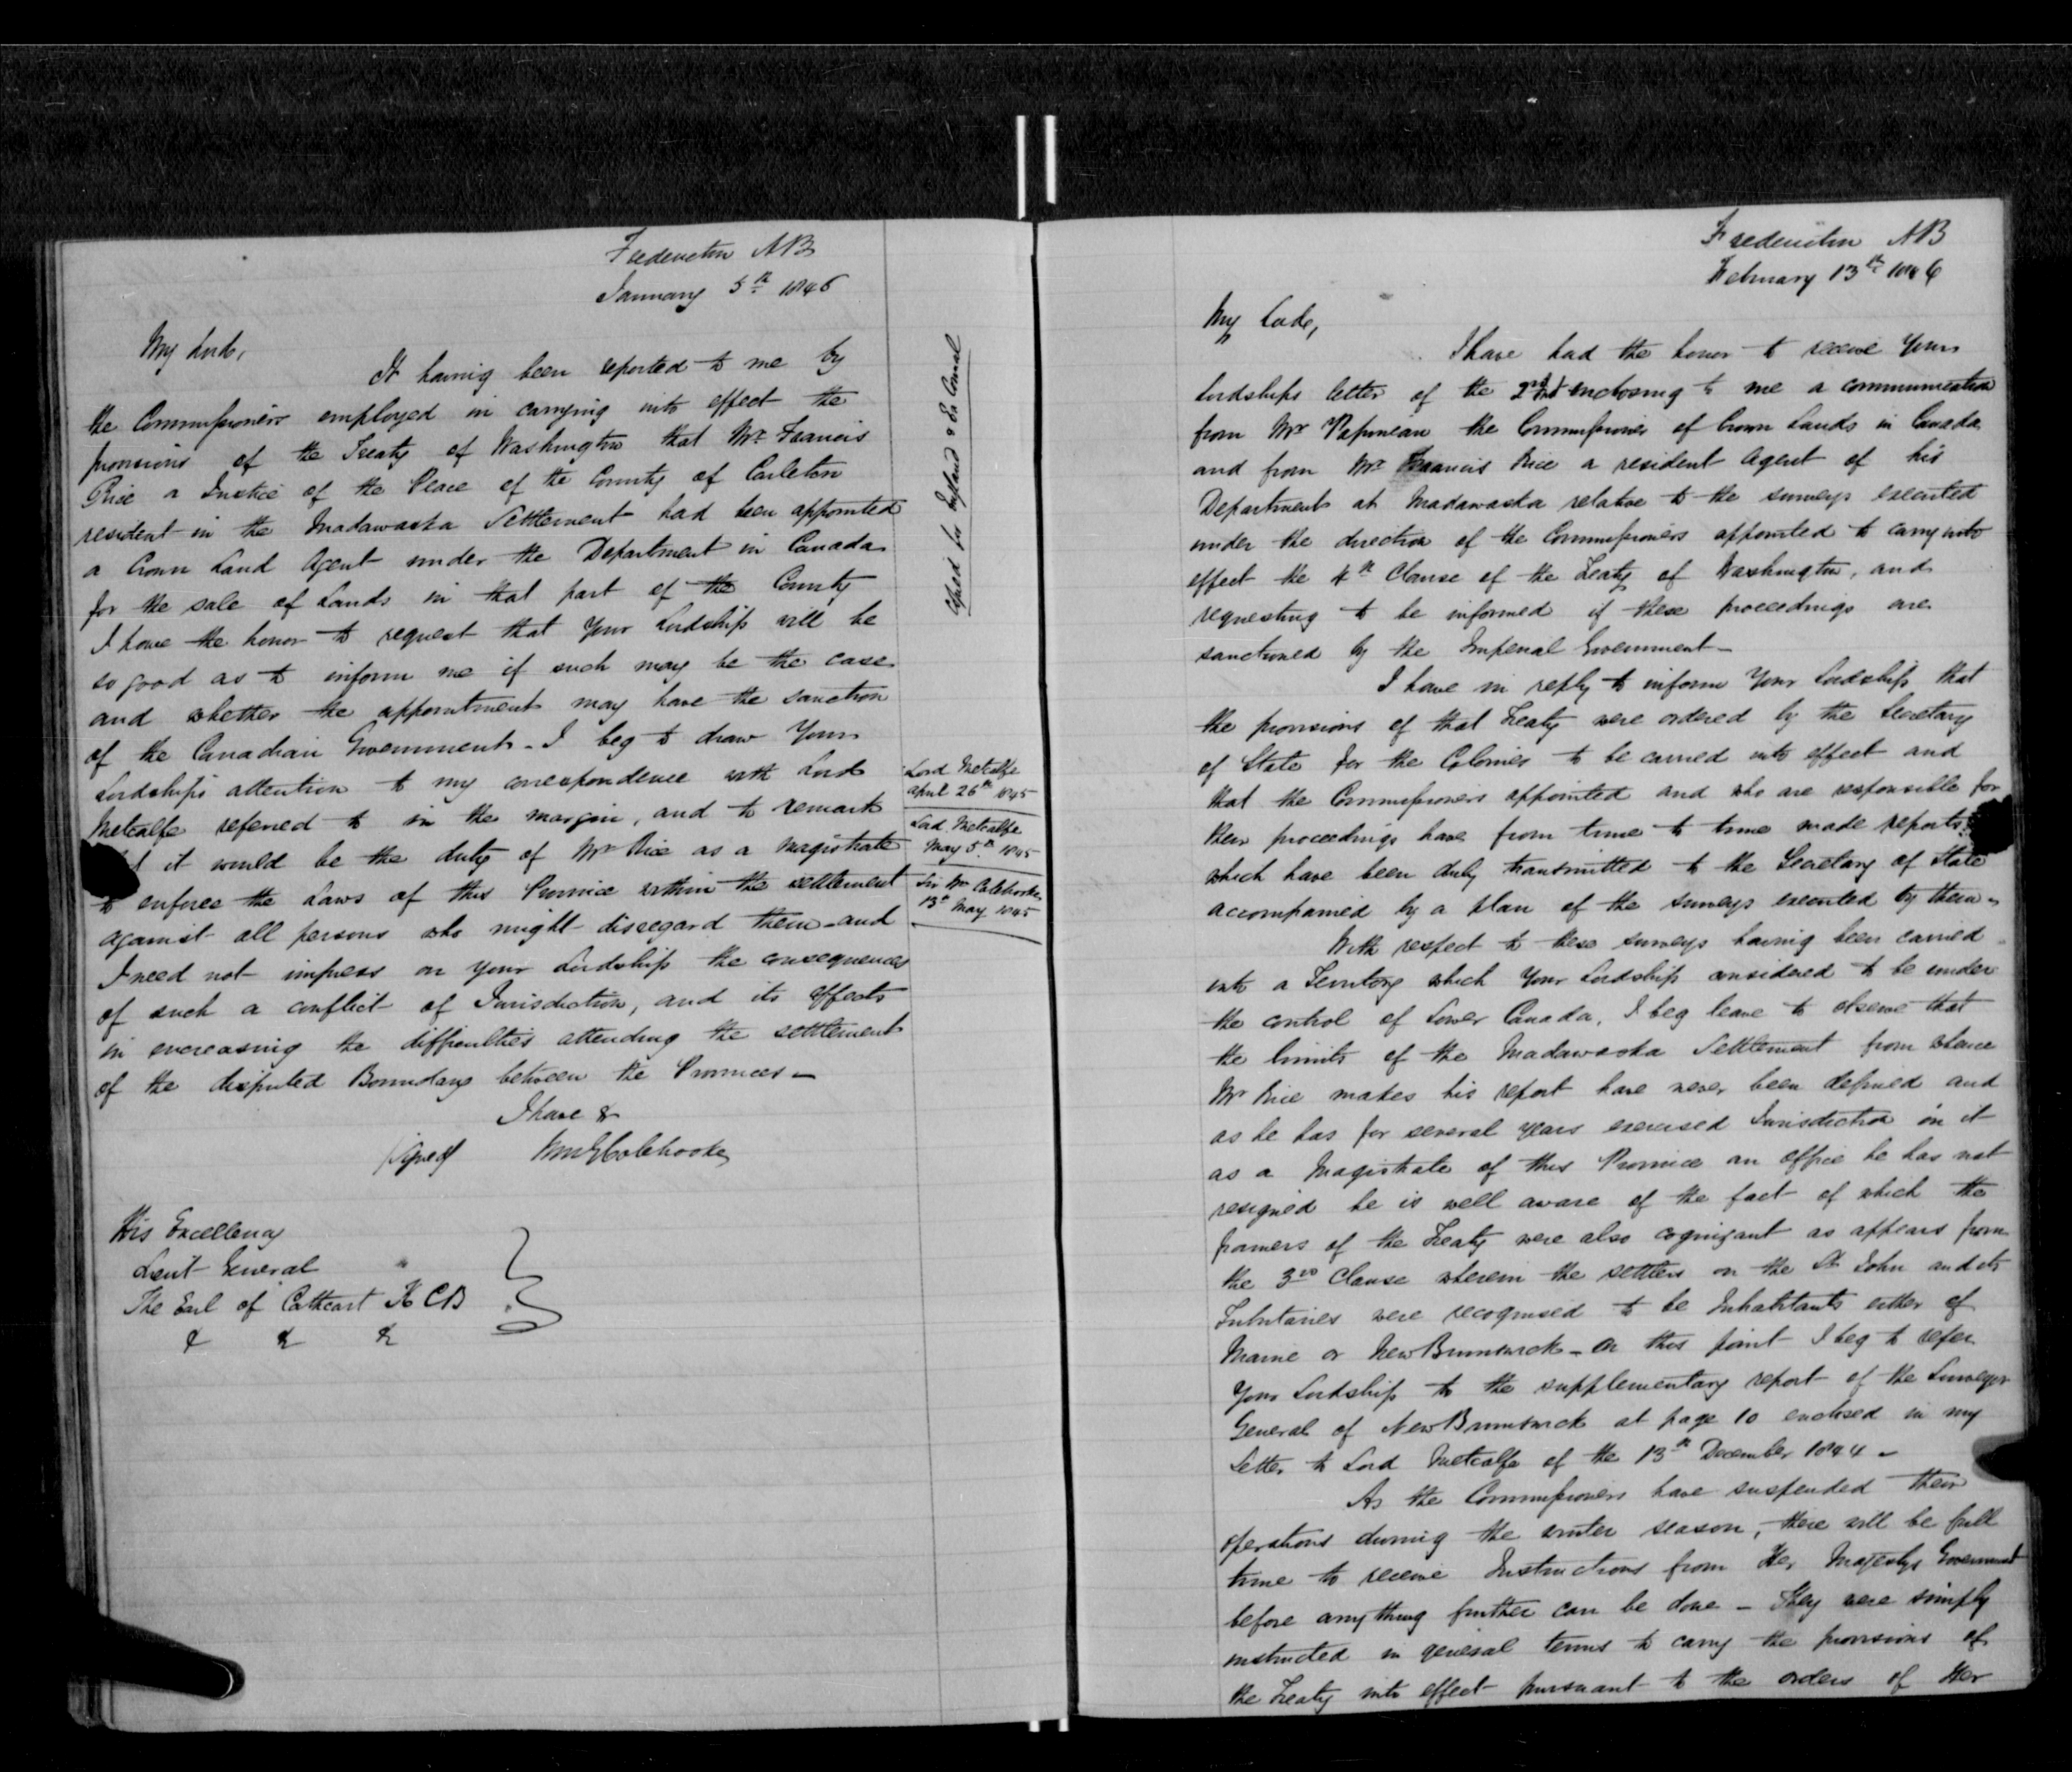 Fredericton NB
January 5th 1846
My Lord,
It having been reported to me by
the Commissioners employed in carrying into effect the
provisions of the Treaty of Washington that Mr Francis
Rice a Justice of the Peace of the County of Carleton
resident in the Madawaska Settlement had been appointed
a Crown Land Agent under the Department in Canada
for the sale of Lands in that part of the County
I have the honor to request that Your Lordship will be
so good as to inform me if such may be the case
and whether the appointment may have the sanction
of the Canadian Government - I beg to draw Your
Lordships attention to my correspondence with Lord
Metcalfe referred to in the margin, and to remark
it would be the duty of Mr Rice as a Magistrate
to enforce the Laws of this Province within the settlement
against all persons who might disregard them - and
I need not impress on your Lordship the consequences
of such a conflict of Jurisdiction, and its effects
in encreasing the difficulties attending the settlement
of the disputed Boundary between the Provinces -
I have &
signed WmGColebrooke
His Excellency
Lieut General
The Earl of Cathcart K C B
& & &
Copied for England & Ex Council
Lord Metcalfe
april 26th 1845
Lord Metcalfe
May 5th 1845
Sir Wm Colebrooke
13th May 1845
Fredericton NB
February 13th 1846
My Lord,
I have had the honor to receive Your
Lordships letter of the 2nd enclosing to me a communication
from Mr Papineau the Commissioner of Crown Lands in Canada
and from Mr Francis Rice a resident Agent of his
Department at Madawaska relative to the surveys executed
under the direction of the Commissioners appointed to carry into
effect the 4th Clause of the Treaty of Washington, and
requesting to be informed if these proceedings are
sanctioned by the Imperial Government -
I have in reply to inform Your Lordship that
the provisions of that Treaty were ordered by the Secretary
of State for the Colonies to be carried into effect and
that the Commissioners appointed and who are responsible for
their proceedings have from time to time made reports
which have been duly transmitted to the Secretary of State
accompanied by a plan of the surveys executed by them -
With respect to these surveys having been carried
into a Territory which Your Lordship considered to be under
the control of Lower Canada, I beg leave to observe that
the limits of the Madawaska Settlement from whence
Mr Rice makes his report have never been defined and
as he has for several years exercised Jurisdiction in it
as a Magistrate of this Province an office he has not
resigned he is well aware of the fact of which the
framers of the Treaty were also cognizant as appears from
the 3rd Clause wherein the settlers on the St John and its
Tributaries were recognised to be Inhabitants either of
Maine or New Brunswick - On this point I beg to refer
Your Lordship to the supplementary report of the Surveyor
General of New Brunswick at page 10 enclosed in my
Letter to Lord Metcalfe of the 13th December 1844 -
As the Commissioners have suspended their
operations during the winter season, there will be full
time to receive Instructions from Her Majestys Government
before any thing further can be done - They were simply
instructed in general terms to carry the provisions of
the Treaty into effect pursuant to the orders of Her